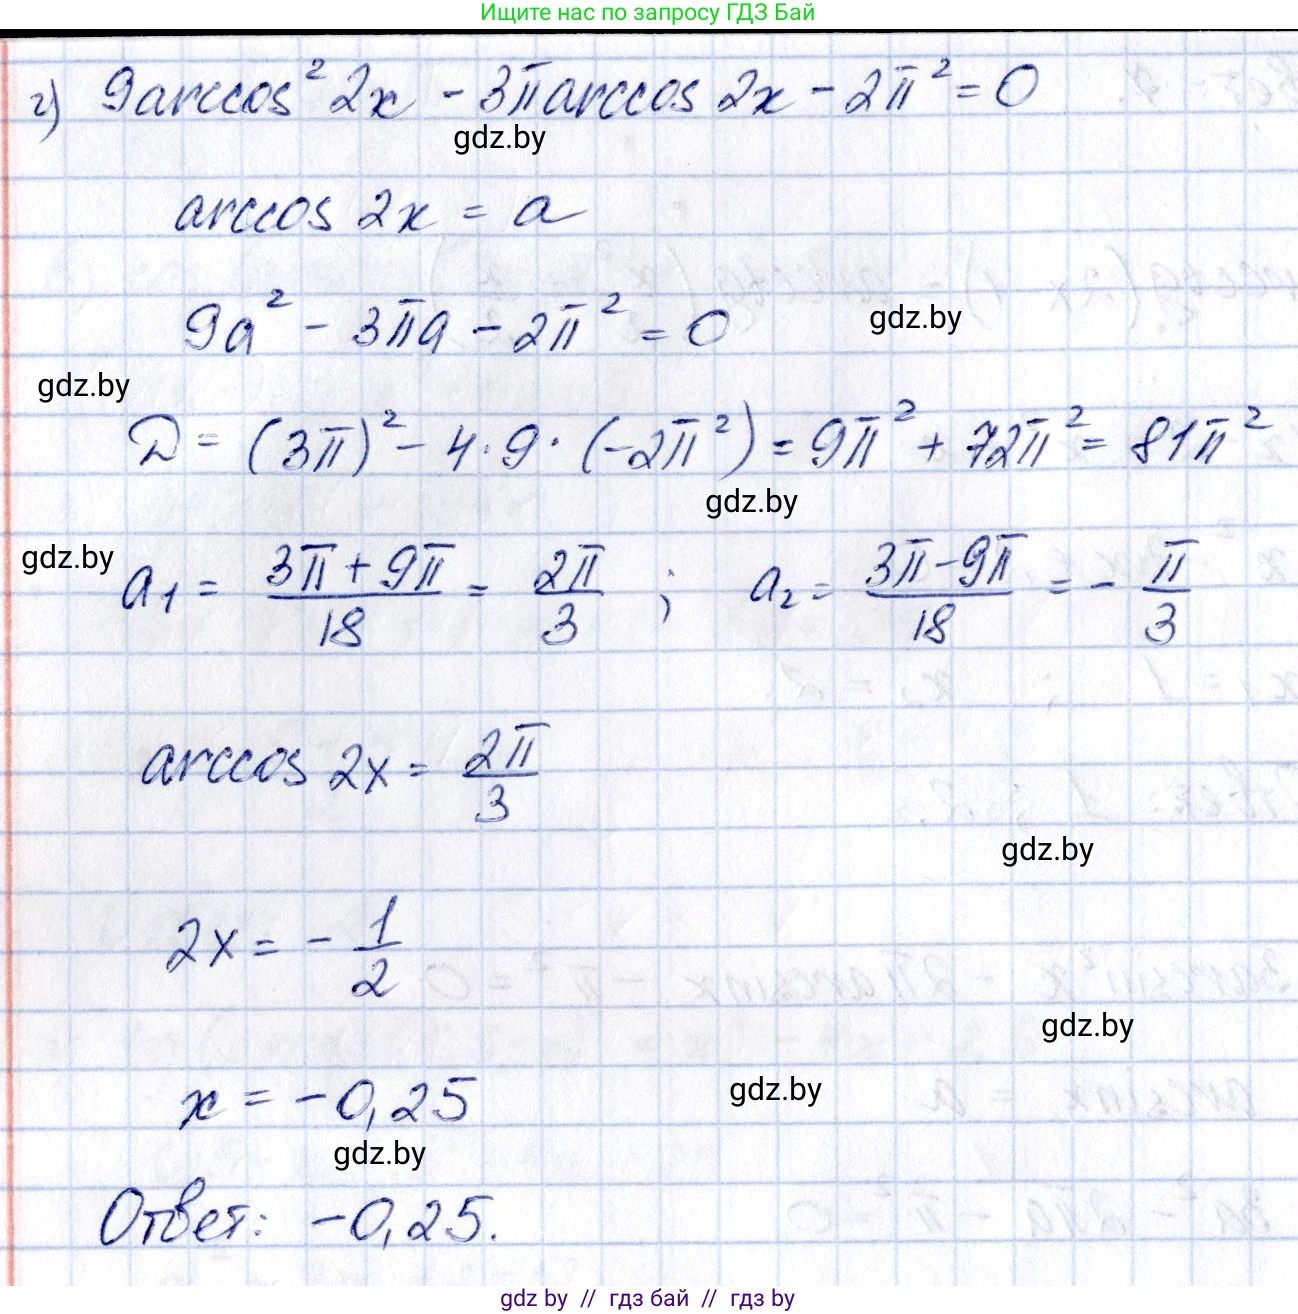 Ищите нас по запросу ГДЗ Бай
г) 9arccos² 2x - 3πarccos 2x - 2π² = 0
gdz.by
arccos 2x = a
9a² - 3πa - 2π² = 0
gdz.by
gdz.by
D = (3π)² - 4·9·(-2π²) = 9π² + 72π² = 81π²
gdz.by
gdz.by
a₁ = (3π + 9π)/18 = 2π/3 ; a₂ = (3π - 9π)/18 = - π/3
arccos 2x = 2π/3
gdz.by
2x = - 1/2
gdz.by
x = -0,25
gdz.by
gdz.by
Ответ: -0,25.
gdz.by // гдз бай // гдз by